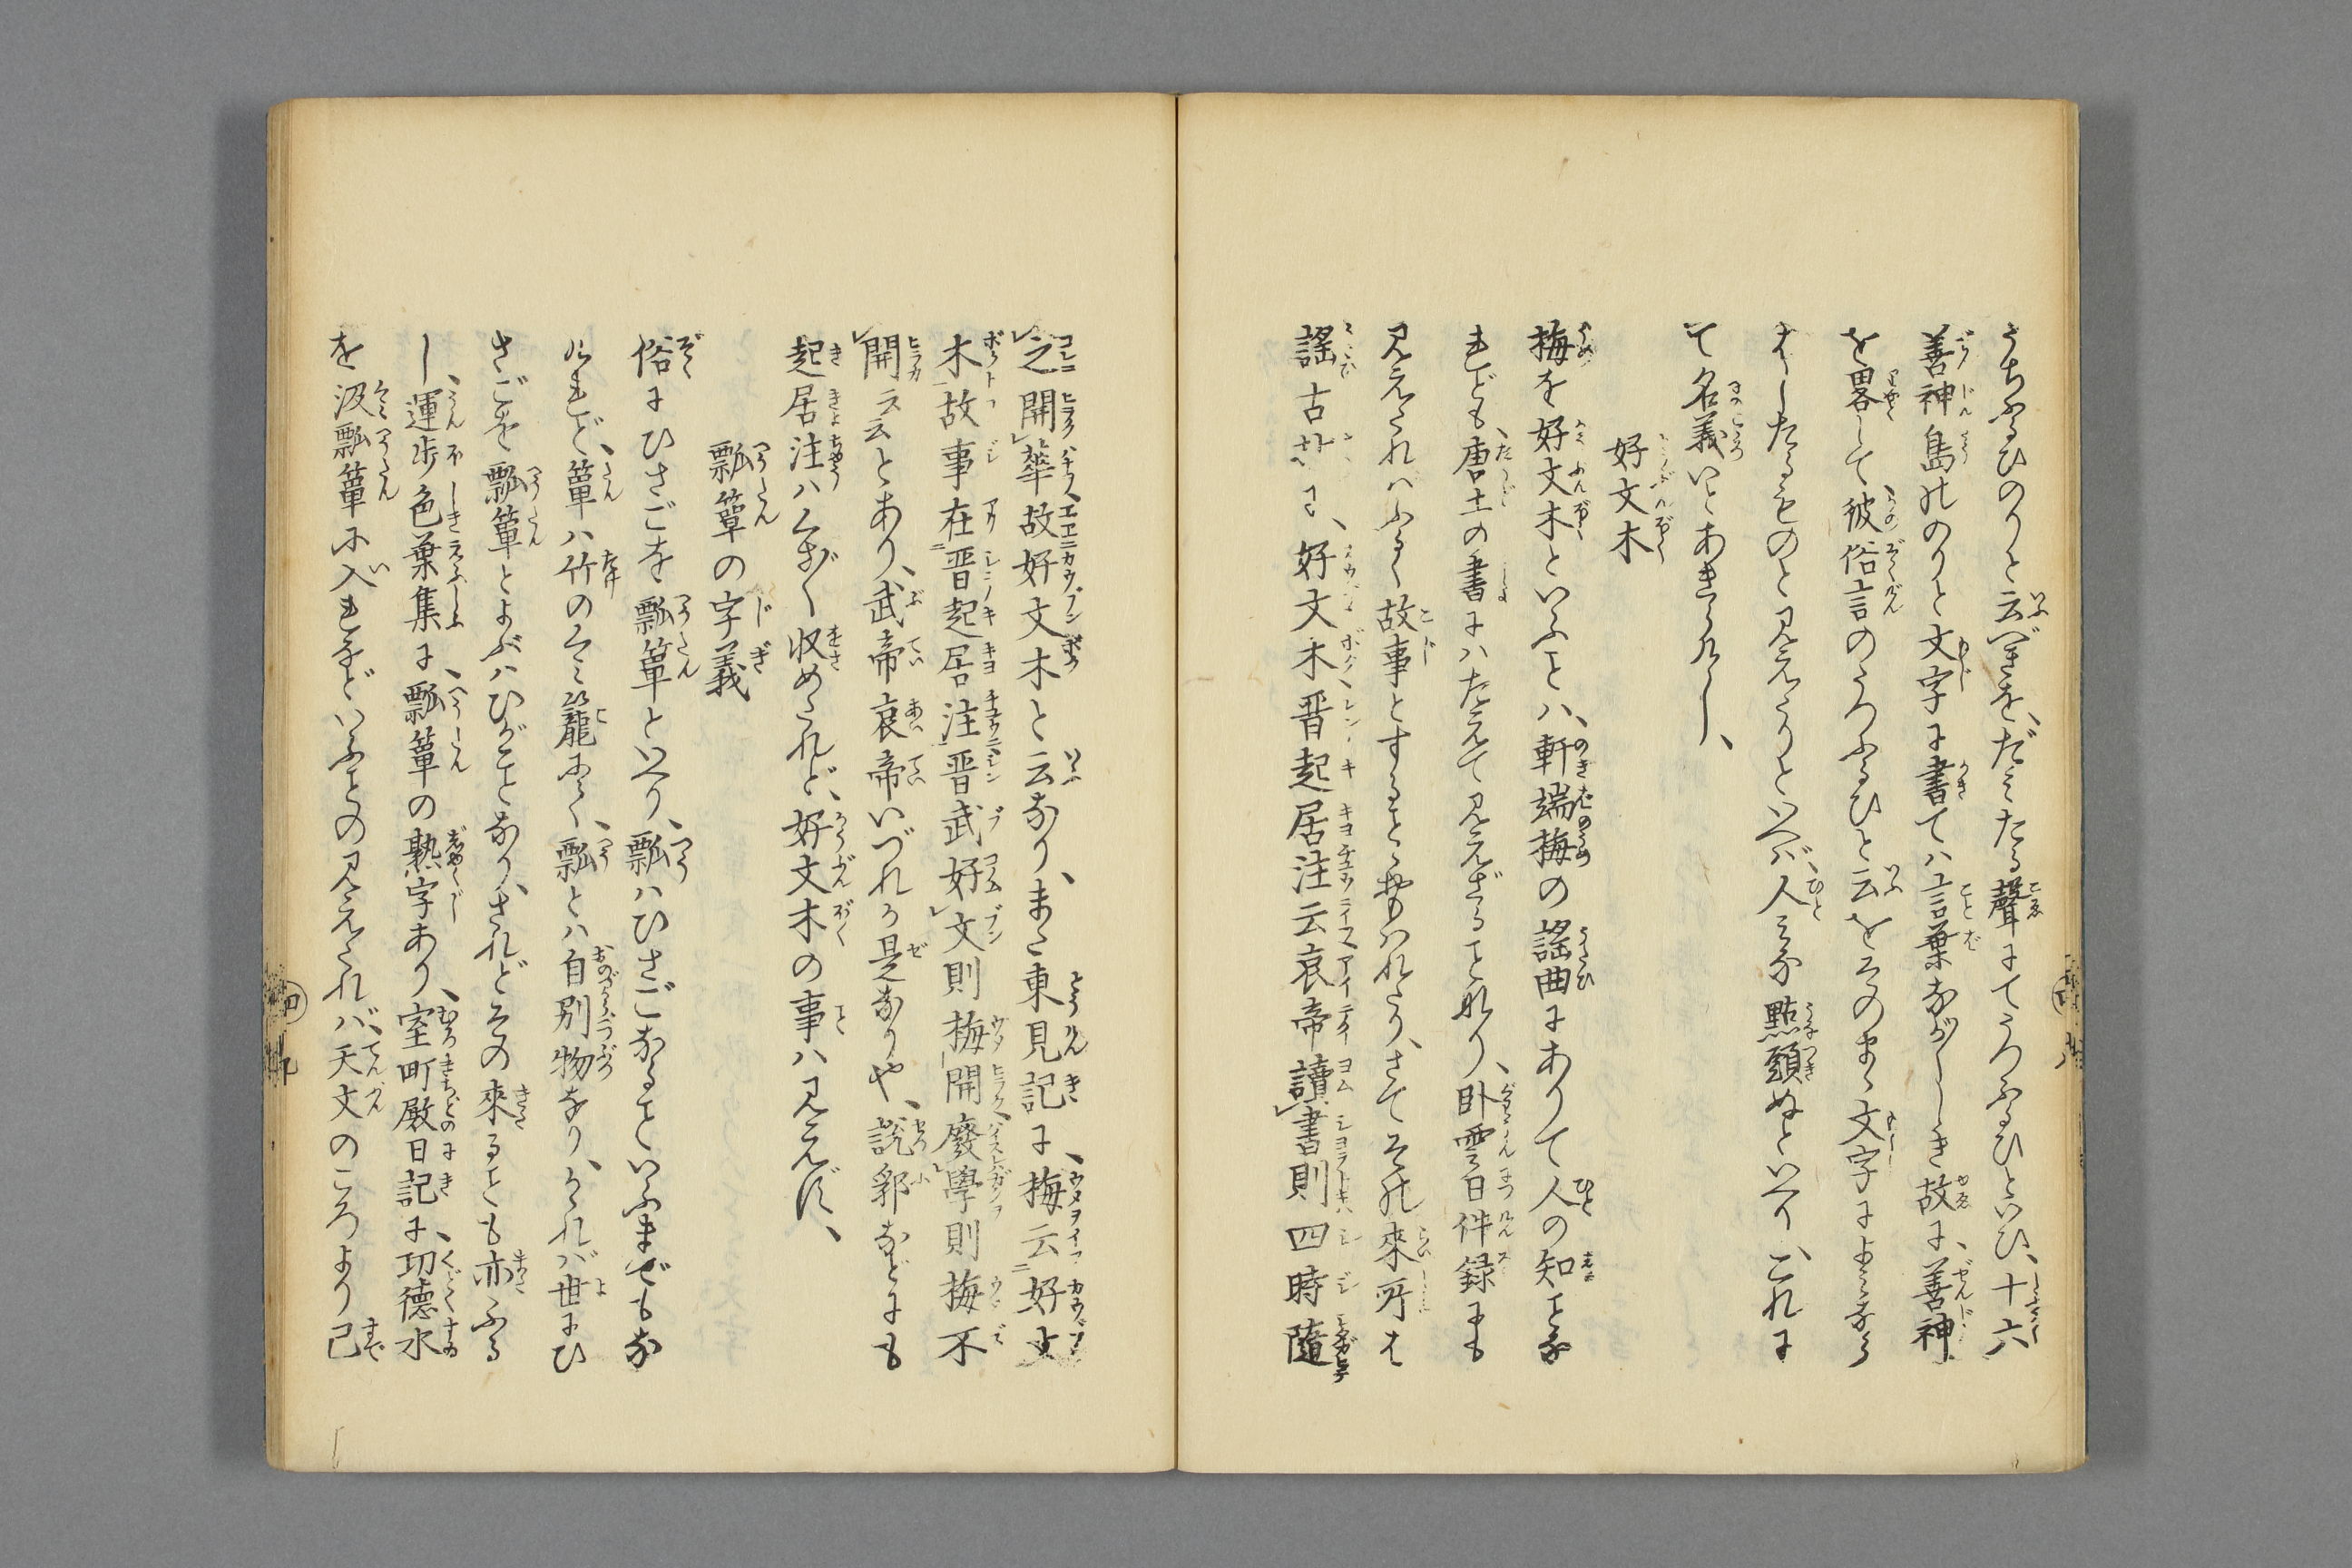 うちふるひのりと云べきを、だみたる聲にてうつふるひといひ、十六
善神島のりと文字に書ては言葉ながしき故に、善神
を畧して、彼俗言のうつふるひと云をそのまゝ文字によみなら
はしたるものと見えたりといへば、人みな點頭ぬといへり、これに
て名義いとあきらけし、
好文木
梅を好文木といふことは、軒端梅の謠曲にありて人の知ことな
れども、唐土の書にはたえて見えざることなり、臥雲日件録にも
見えたればふるく故事とすることゝおもはれたり、さてその來所は
謠古抄に、好文木晋起居注云哀帝讀書則四時隨
之開華故好文木と云なり、また東見記に、梅云好文
木故事在晋起居注晋武好文則梅開廢學則梅不
開云云とあり、武帝哀帝いづれか是なりや、説郛などにも
起居注はくさ〴〵収めたれど、好文木の事は見えず、
瓢簞の字義
俗にひさごを瓢簞といへり、瓢はひさごなることいふまでもな
けれど、簞は竹のくみ籠にて、瓢とは自別物なり、かゝれば世にひ
さごを瓢簞とよぶはひがことなり、されどその來ることも亦ふる
し、運歩色葉集に、瓢簞の熟字あり、室町殿日記に、功德水
を汲瓢簞に入れなどいふことの見えたれば、天文のころより已